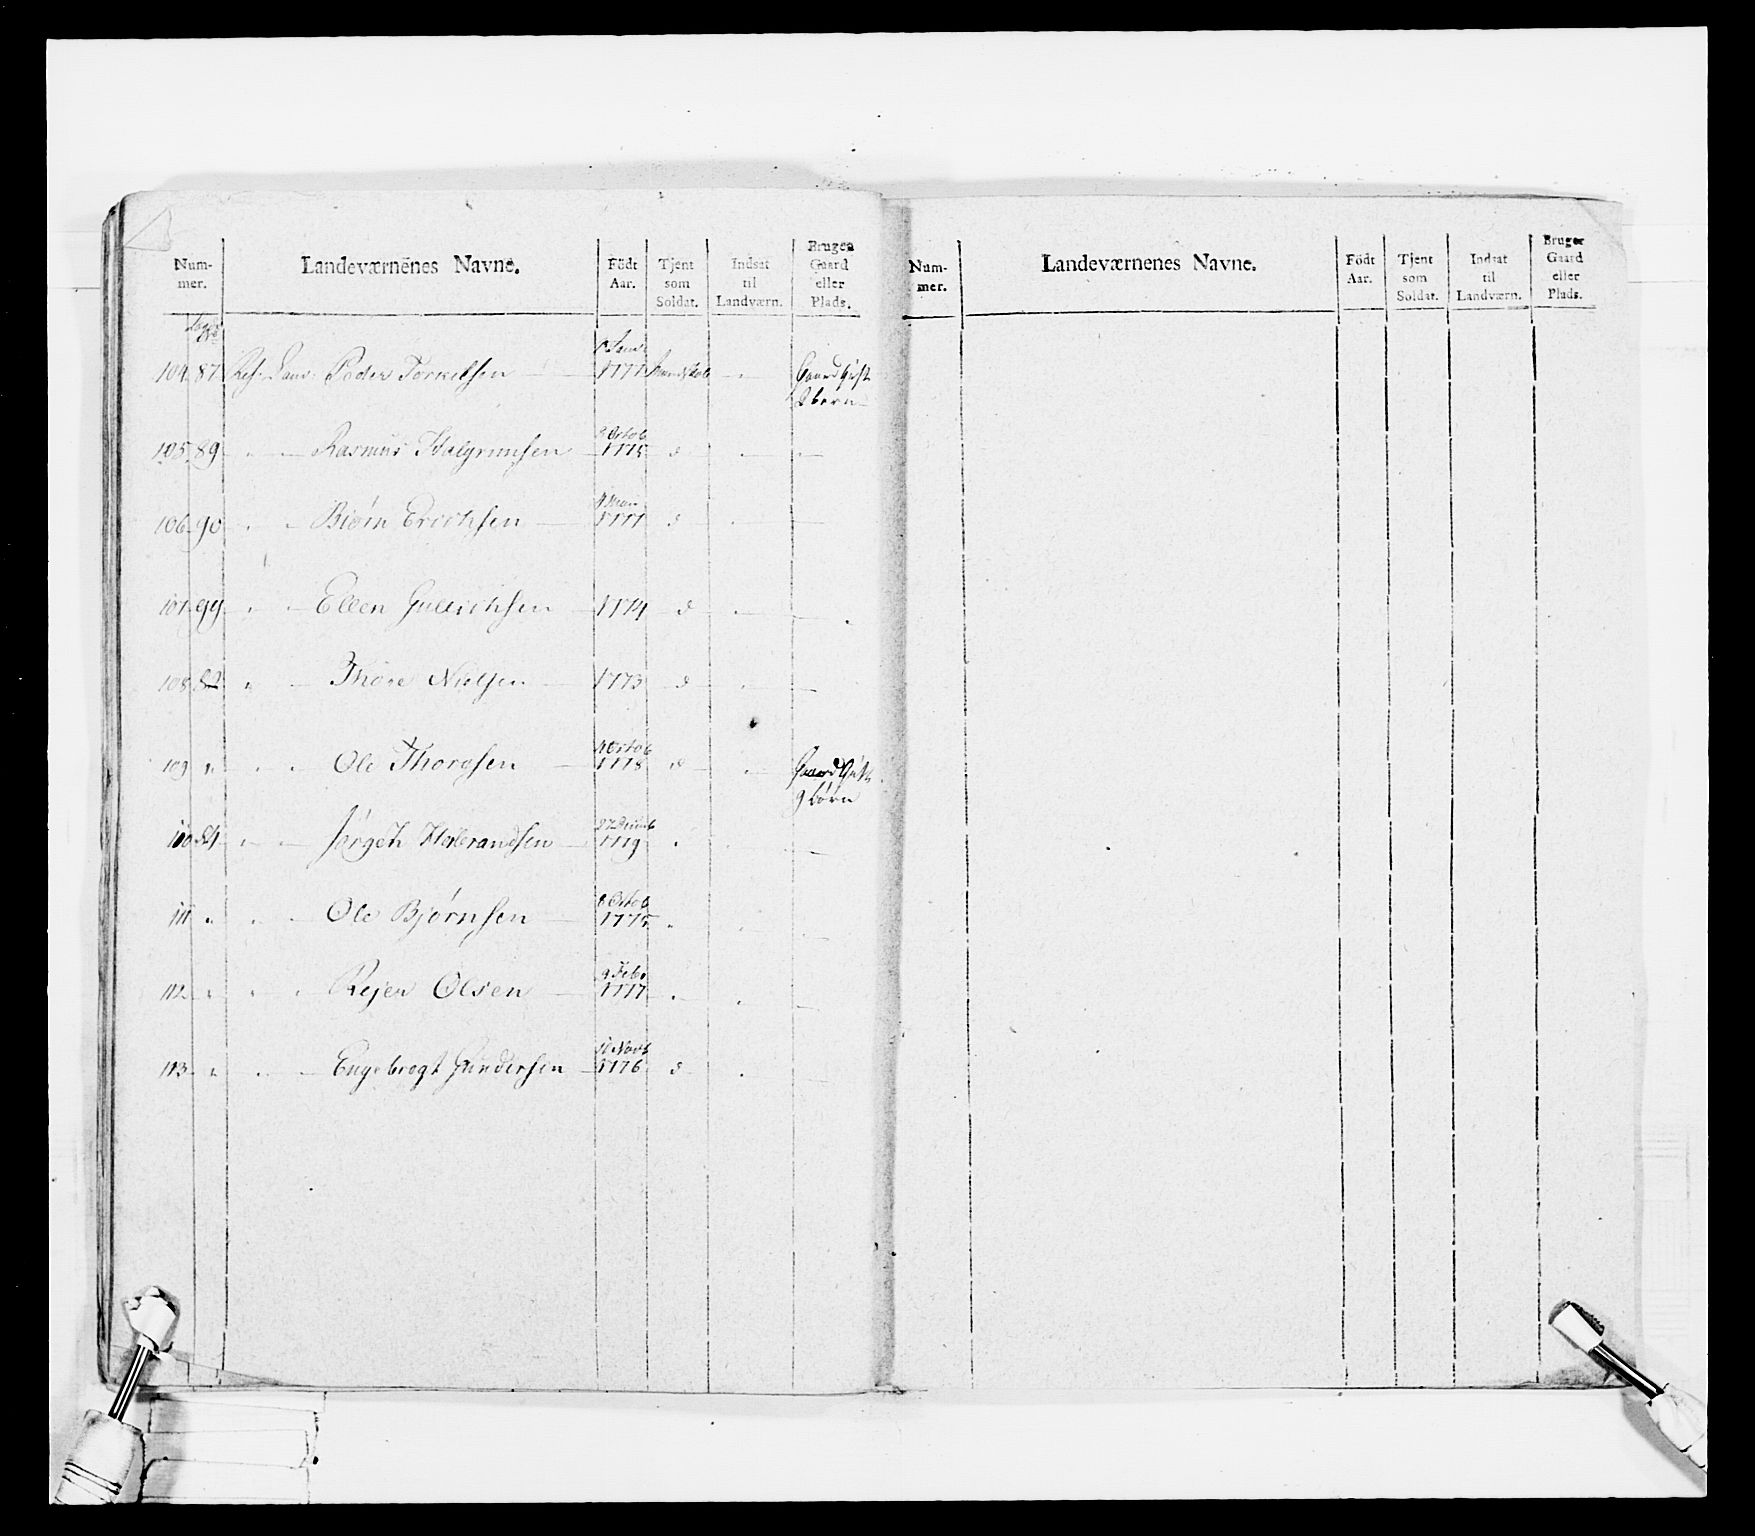 Num-
mer.
Landeværnenes Navne.
Födt
Aar.
Tjent
som
Soldat.
Indsat
til
Landværn.
Bruger
Gaard
eller
Plads.
104 87 Peder Torkelsen 1777 Gaard Gift
105 89 " Rasmus Halgrimsen 8 Octob 1775 d " —
106 90 " " Biørn Erichsen 1777 d " —
107 99 " " Ellen Gullichsen 1774 d " —
108 82 " Thore Nielsen 1773 d " —
109 " " " Ole Thoresen Octob 1778 d " Gaard Gift
9 børn
110 84 " Jørgen Halvrandsen 27 Decemb 1779 " —
111 " " " Ole Bjørnsen 8 Octob 1775 " " —
112 " " " Rejer Olsen 9 Feb 1777 " " —
113 " " Engebregt Gundersen 10 Novb 1776 d " —
Num-
mer.
Landeværnenes Navne.
Födt
Aar.
Tjent
som
Soldat.
Indsat
til
Landværn.
Bruger
Gaard
eller
Plads.